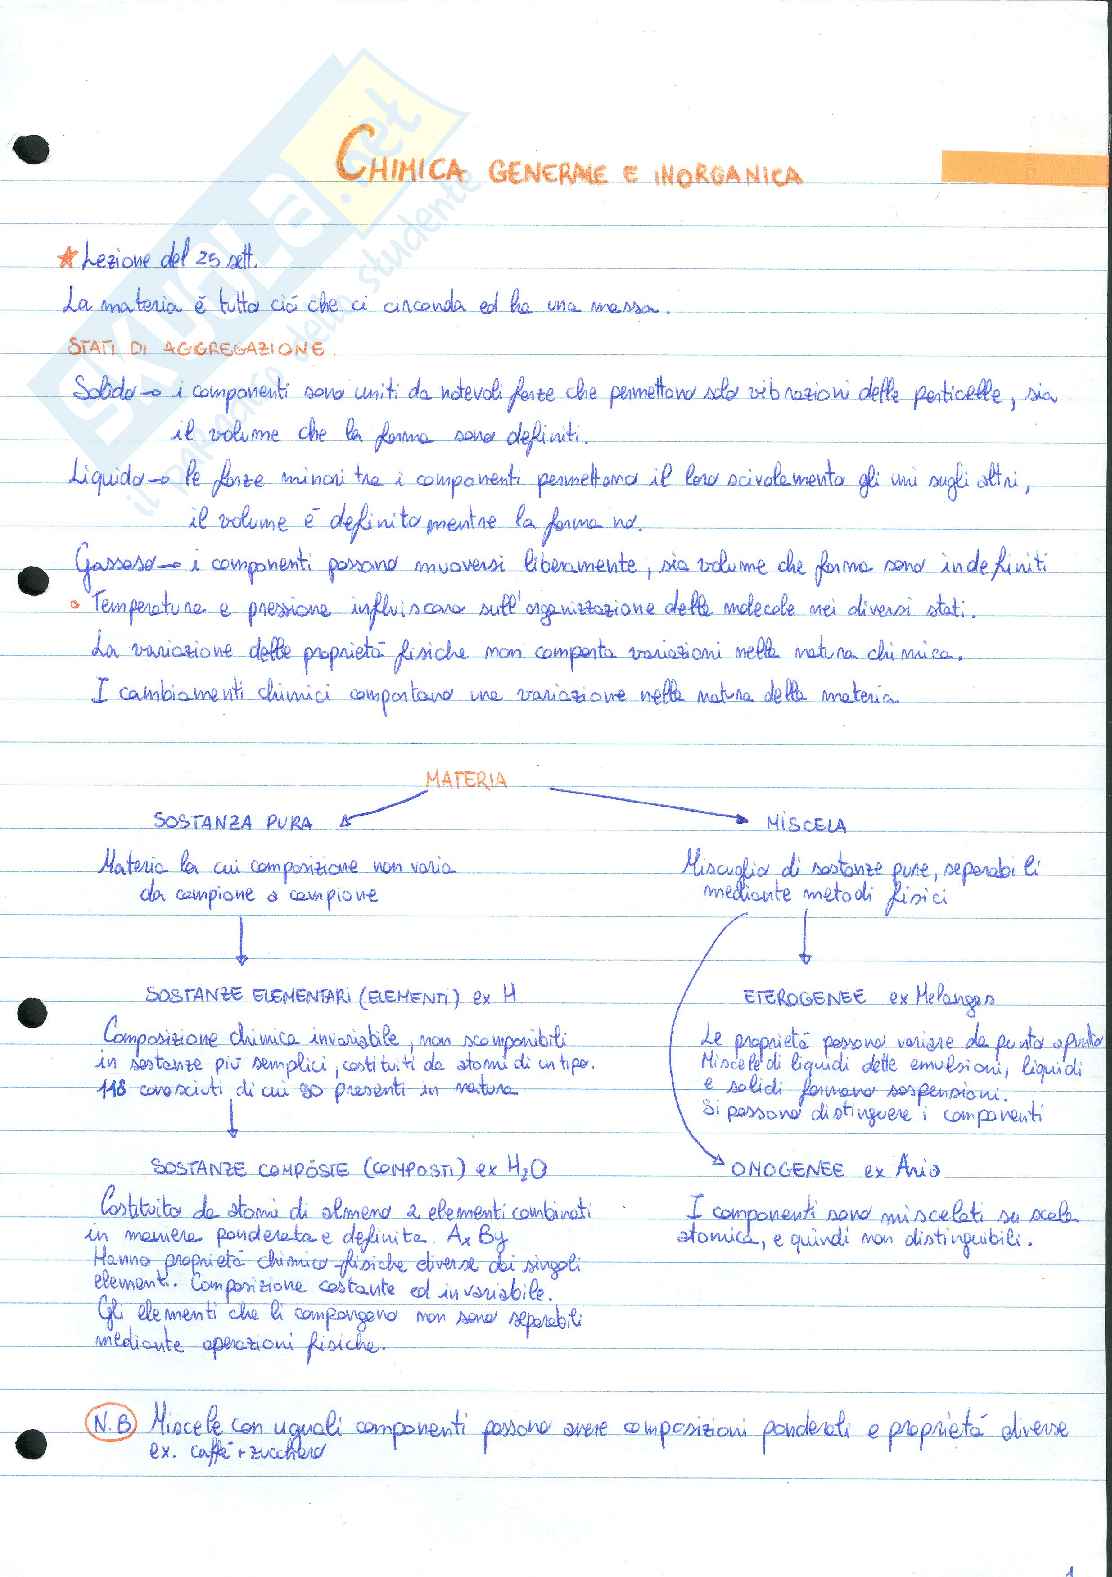 SKUOLA.net
il paradiso dello studente
CHIMICA GENERALE E INORGANICA
Lezione del 25 sett.
La materia è tutto ciò che ci circonda ed ha una massa.
STATI DI AGGREGAZIONE
Solido → i componenti sono uniti da notevoli forze che permettono solo vibrazioni delle particelle, sia
il volume che la forma sono definiti.
Liquido → le forze minori tra i componenti permettono il loro scivolamento gli uni sugli altri,
il volume è definito mentre la forma no.
Gassoso → i componenti possono muoversi liberamente, sia volume che forma sono indefiniti
Temperatura e pressione influiscono sull'organizzazione delle molecole nei diversi stati.
La variazione delle proprietà fisiche non comporta variazioni nella natura chimica.
I cambiamenti chimici comportano una variazione nella natura della materia
MATERIA
SOSTANZA PURA
Materia la cui composizione non varia
da campione a campione
SOSTANZE ELEMENTARI (ELEMENTI) ex H
Composizione chimica invariabile, non scomponibili
in sostanze più semplici, costituiti da atomi di un tipo.
118 conosciuti di cui 90 presenti in natura
SOSTANZE COMPOSTE (COMPOSTI) ex H₂O
Costituito da atomi di almeno 2 elementi combinati
in maniera ponderata e definita. Ax By
Hanno proprietà chimico-fisiche diverse dai singoli
elementi. Composizione costante ed invariabile.
Gli elementi che li compongono non sono separabili
mediante operazioni fisiche.
MISCELA
Miscuglio di sostanze pure, separabili
mediante metodi fisici
ETEROGENEE ex Melanges
Le proprietà possono variare da punto a punto
Miscele di liquidi dette emulsioni, liquidi
e solidi formano sospensioni.
Si possono distinguere i componenti
OMOGENEE ex Aria
I componenti sono miscelati su scala
atomica, e quindi non distinguibili.
N.B Miscele con uguali componenti possono avere composizioni ponderali e proprietà diverse
ex. caffè + zucchero
1